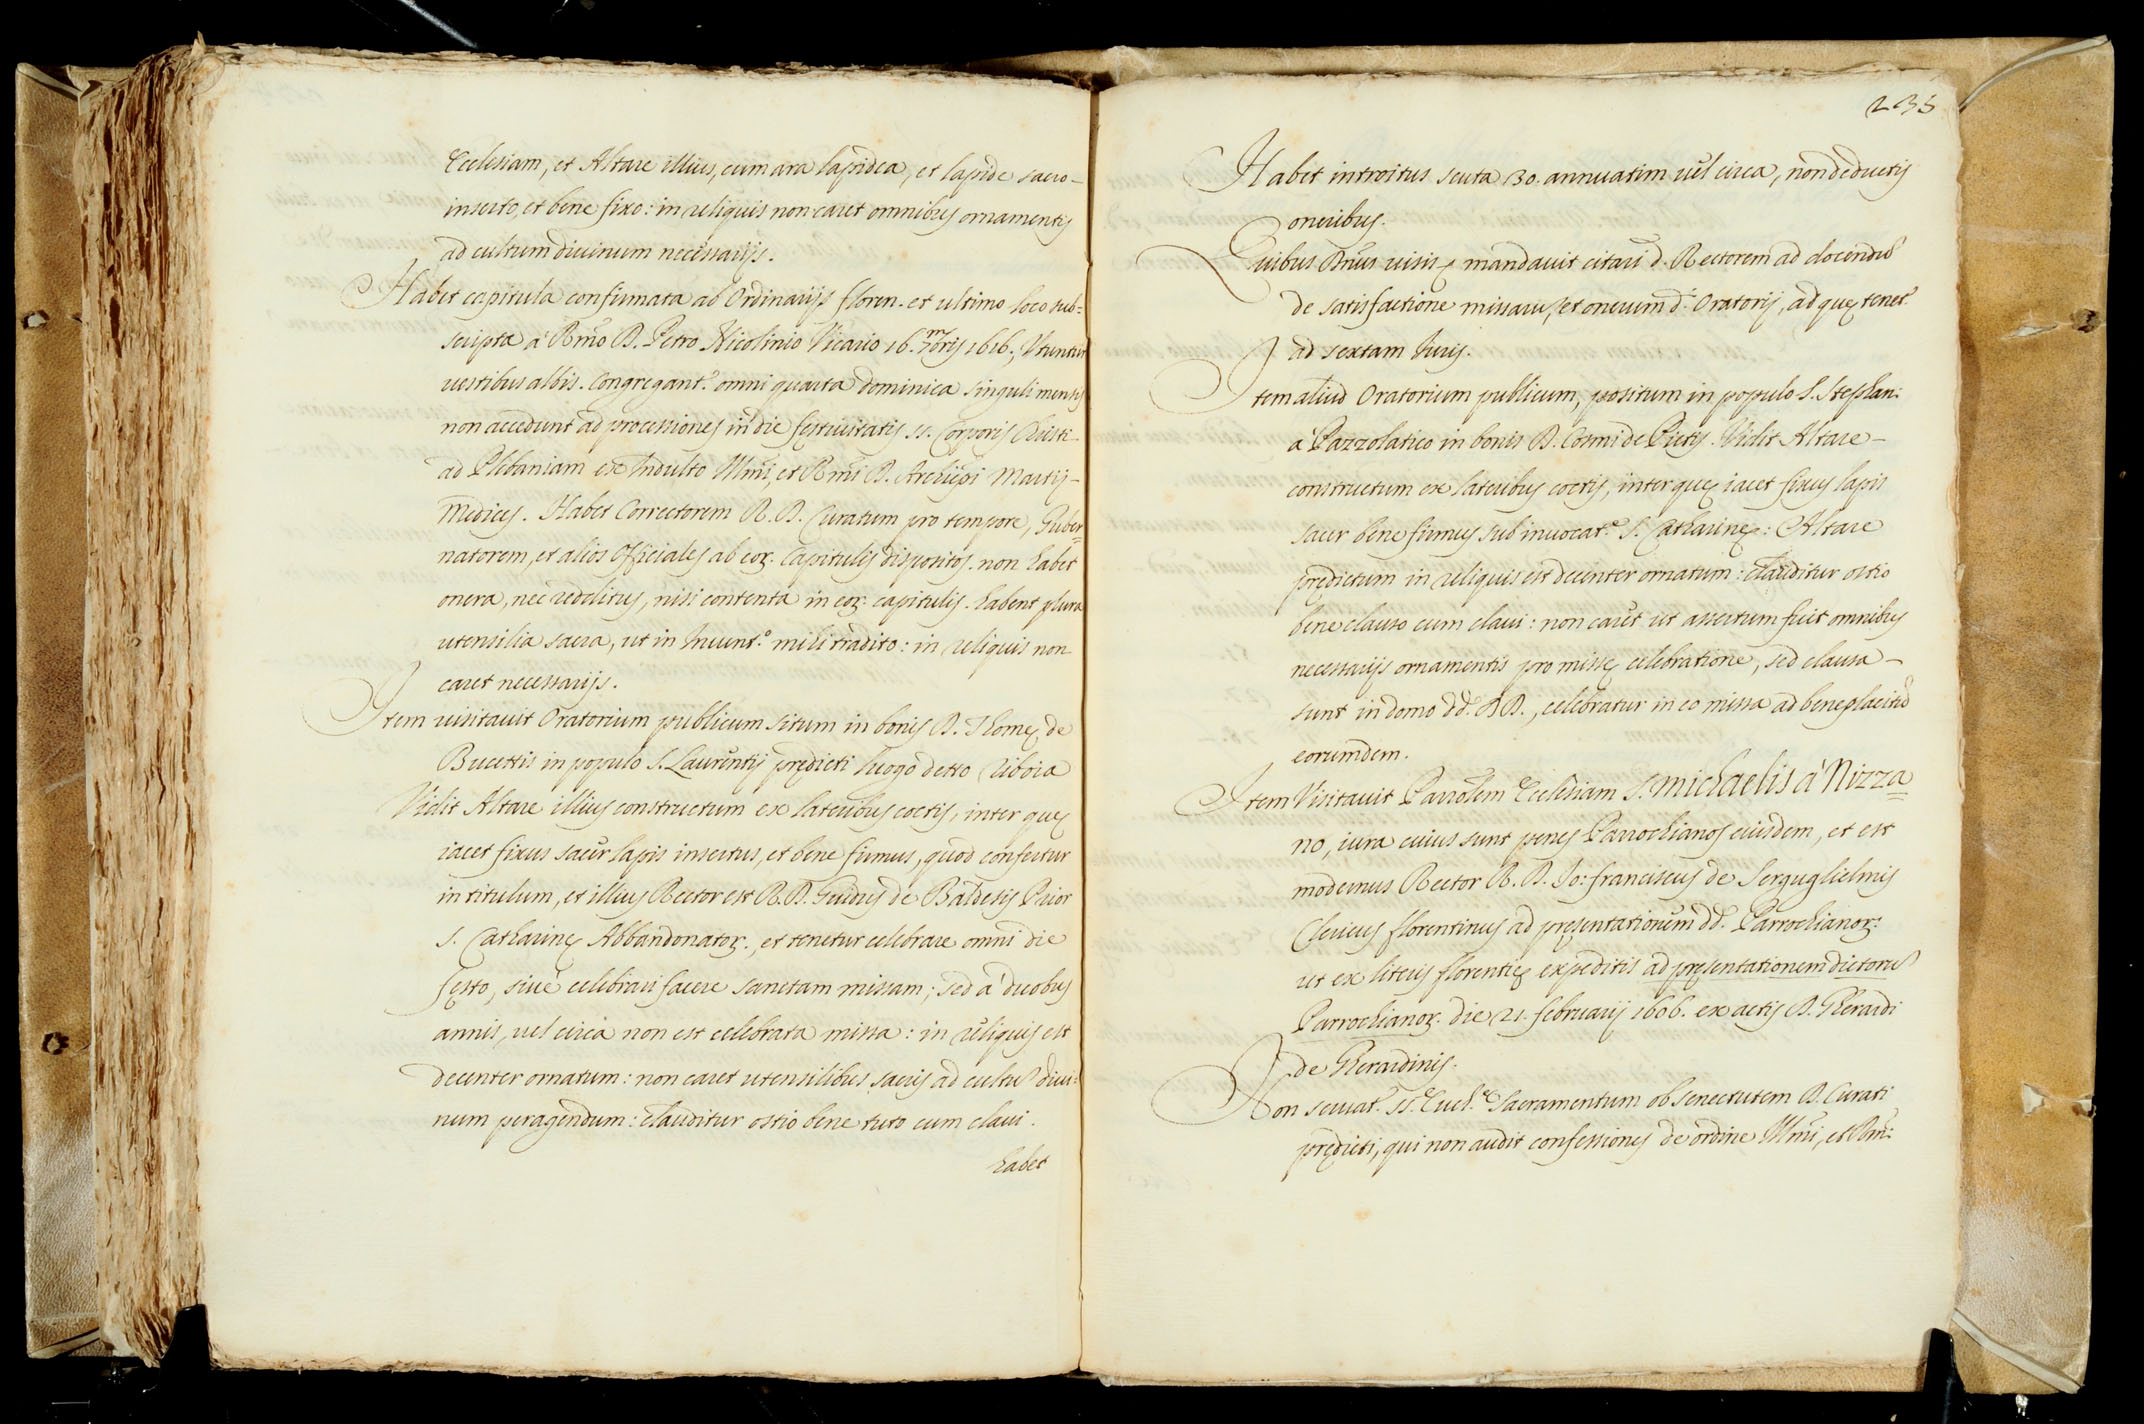 Ecclesiam, et Altare illius, cum ara lapidea, et lapide sacro-
inserto, et bene fixo: in reliquis non caret omnibus ornamentis
ad cultum divinum necessarijs.
Habet capitula confirmata ab Ordinarijs floren. et ultimo loco sub=
scripta à Rmo D. Petro Nicolinio Vicario 16. 7mbris 1616., Utuntur
vestibus albis. Congregant.r omni quarta dominica singuli mensis
non accedunt ad processiones in die festivitatis SS. Corporis Christi-
ad Plebaniam ex Indulto Illmi, et Rmi D. Archiepi Martij-
Medices. Habet Correctorem R. D. Curatum pro tempore, Guber=
natorem, et alios Officiales ab eoꝝ. Capitulis dispositos. non habet
onera, nec redditus, nisi contenta in eoꝝ. capitulis. habent plura
utensilia sacra, ut in Invent.o mihi tradito: in reliquis non
caret necessarijs.
Item visitavit Oratorium publicum situm in bonis D. Thomę de
Bucettis in populo S. Laurentij prędicti luogo detto Riboia
Vidit Altare illius constructum ex lateribus coctis, inter quę
iacet fixus sacer lapis insertus, et bene firmus, quod confertur
in titulum, et illius Rector est R. D. Guidus de Baldesis Prior
S. Catharinę Abbandonatoꝝ. et tenetur celebrare omni die
festo, sive celebrari facere sanctam missam; sed à duobus
annis, vel circa non est celebrata missa: in reliquis est
decenter ornatum: non caret utensilibus sacris ad cultũ divi=
num peragendum: clauditur ostio bene tuto cum clavi.
habet
235
Habet introitus scuta 30. annuatim vel circa, non deductis
oneribus.
Quibus Dnus visis mandavit citari d. Rectorem ad docendũ
de satisfactione missaru, et onerum d.i Oratorij, ad quę tenet.r
ad sextam Iuris.
Item aliud Oratorium publicum, positum in populo S. Stephan:
à Pazzolatico in bonis D. Cosmi de Pictis. Vidit Altare-
constructum ex lateribus coctis, inter quę iacet fixus lapis
sacer bene firmus sub invocat.e S. Catharinę: Altare
prędictum in reliquis est decenter ornatum: clauditur ostio
bene clauso cum clavi: non caret ut assertum fuit omnibus
necessarijs ornamentis pro missę celebratione, sed clausa-
sunt in domo dd. DD., celebratur in eo missa ad beneplacitũ
eorumdem.
Item Visitavit Parrolem Ecclesiam S. Michaelis à Nizza=
no, iura cuius sunt penes Parrochianos eiusdem, et est
modernus Rector R. D. Io: franciscus de Serguglielmis
Clericus florentinus ad pręsentationem dd. Parrochianoꝝ:
ut ex literis florentię expeditis ad pręsentationem dictorũ
Parrochianoꝝ. die 21. februarij 1606. ex actis D. Gherardi
de Gherardinis.
Non servat.r SS. Euch.e Sacramentum ob senectutem D. Curati
prędicti, qui non audit confessiones de ordine Illmi, et Rmi: